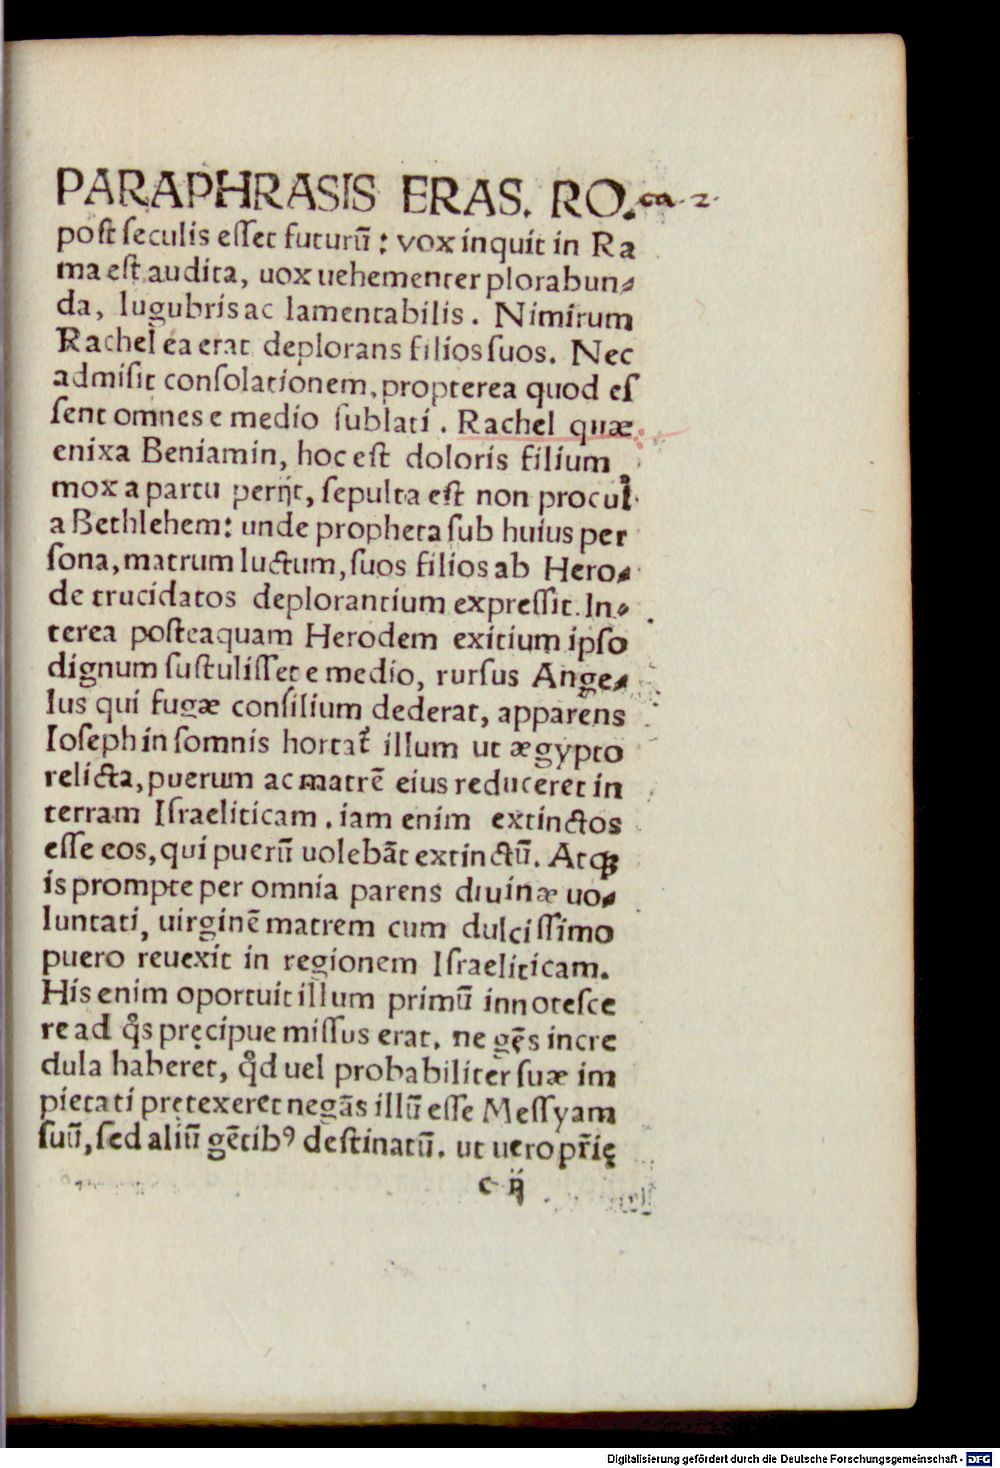 PARAPHRASIS ERAS. RO. ca. 2.
post seculis esset futurū: vox inquit in Ra
ma est audita, uox uehementer plorabun-
da, lugubris ac lamentabilis. Nimirum
Rachel ea erat deplorans filios suos. Nec
admisit consolationem, propterea quod es
sent omnes e medio sublati. Rachel quæ
enixa Beniamin, hoc est doloris filium
mox a partu perijt, sepulta est non procul
a Bethlehem: unde propheta sub huius per
sona, matrum luctum, suos filios ab Hero-
de trucidatos deplorantium expressit. In-
terea posteaquam Herodem exitium ipso
dignum sustulisset e medio, rursus Ange-
lus qui fugæ consilium dederat, apparens
Ioseph in somnis hortat᷑ illum ut ægypto
relicta, puerum ac matrē eius reduceret in
terram Israeliticam. iam enim extinctos
esse eos, qui puerū uolebāt extinctū. Atqꝫ
is prompte per omnia parens diuinæ uo-
luntati, uirginē matrem cum dulcissimo
puero reuexit in regionem Israeliticam.
His enim oportuit illum primū innotesce
re ad q̊s pręcipue missus erat, ne gēs incre
dula haberet, q̊d uel probabiliter suæ im
pietati pretexeret negās illū esse Messyam
suū, sed aliū gētibꝰ destinatū. ut uero pr̄ię
c ij
Digitalisierung gefördert durch die Deutsche Forschungsgemeinschaft - DFG